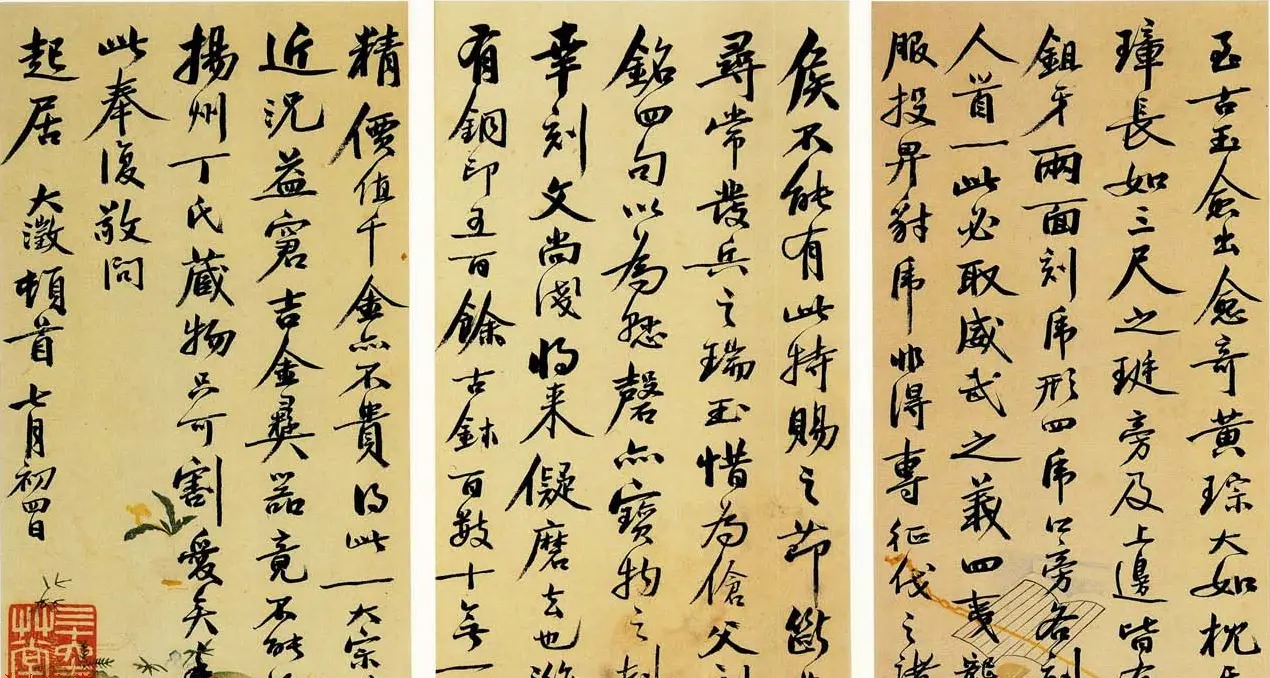 玉古玉愈出愈奇黃琮大如枕
璋長如三尺之珽旁及上邊皆有
鉏牙兩面刻虎形四虎口旁各刻
人首一此必取威武之義四夷
服投畀豺虎非得專征伐之諸
侯不能有此特賜之節斷
尋常發兵之瑞玉惜為傖父
銘四句以為愁磬亦寶物之
幸刻文尚淺將來儗磨去也
有銅印五百餘古鉨百數十無一
精價值千金亦不貴得此一大宗
近況益窘吉金彝器竟不能
揚州丁氏藏物只可割愛矣
此奉復敬問
起居 大澂頓首 七月初四日